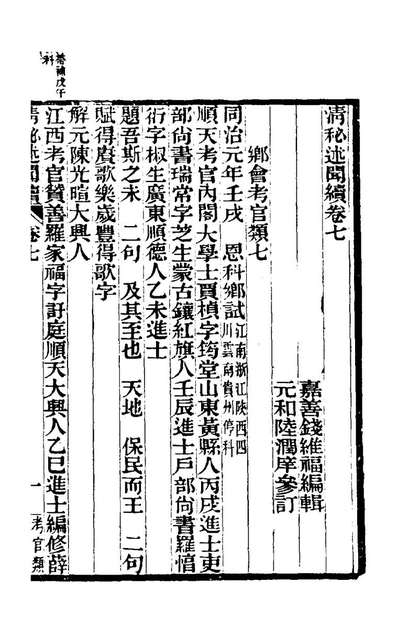 清秘述聞續卷七
嘉善錢維福編輯
元和陸潤庠參訂
鄉會考官類七
同治元年壬戌 恩科鄉試江南浙江陝西四
川雲南貴州停科
順天考官內閣大學士賈楨字筠堂山東黃縣人丙戌進士吏
部尚書瑞常字芝生蒙古鑲紅旗人壬辰進士戶部尚書羅惇
衍字椒生廣東順德人乙未進士
題吾斯之未 二句 及其至也 天地 保民而王 二句
賦得賡歌樂歲豐得歌字
解元陳光暄大興人
江西考官贊善羅家福字訏庭順天大興人乙巳進士編修薛
清秘述聞續 卷七
一 考官類
補戊午
科